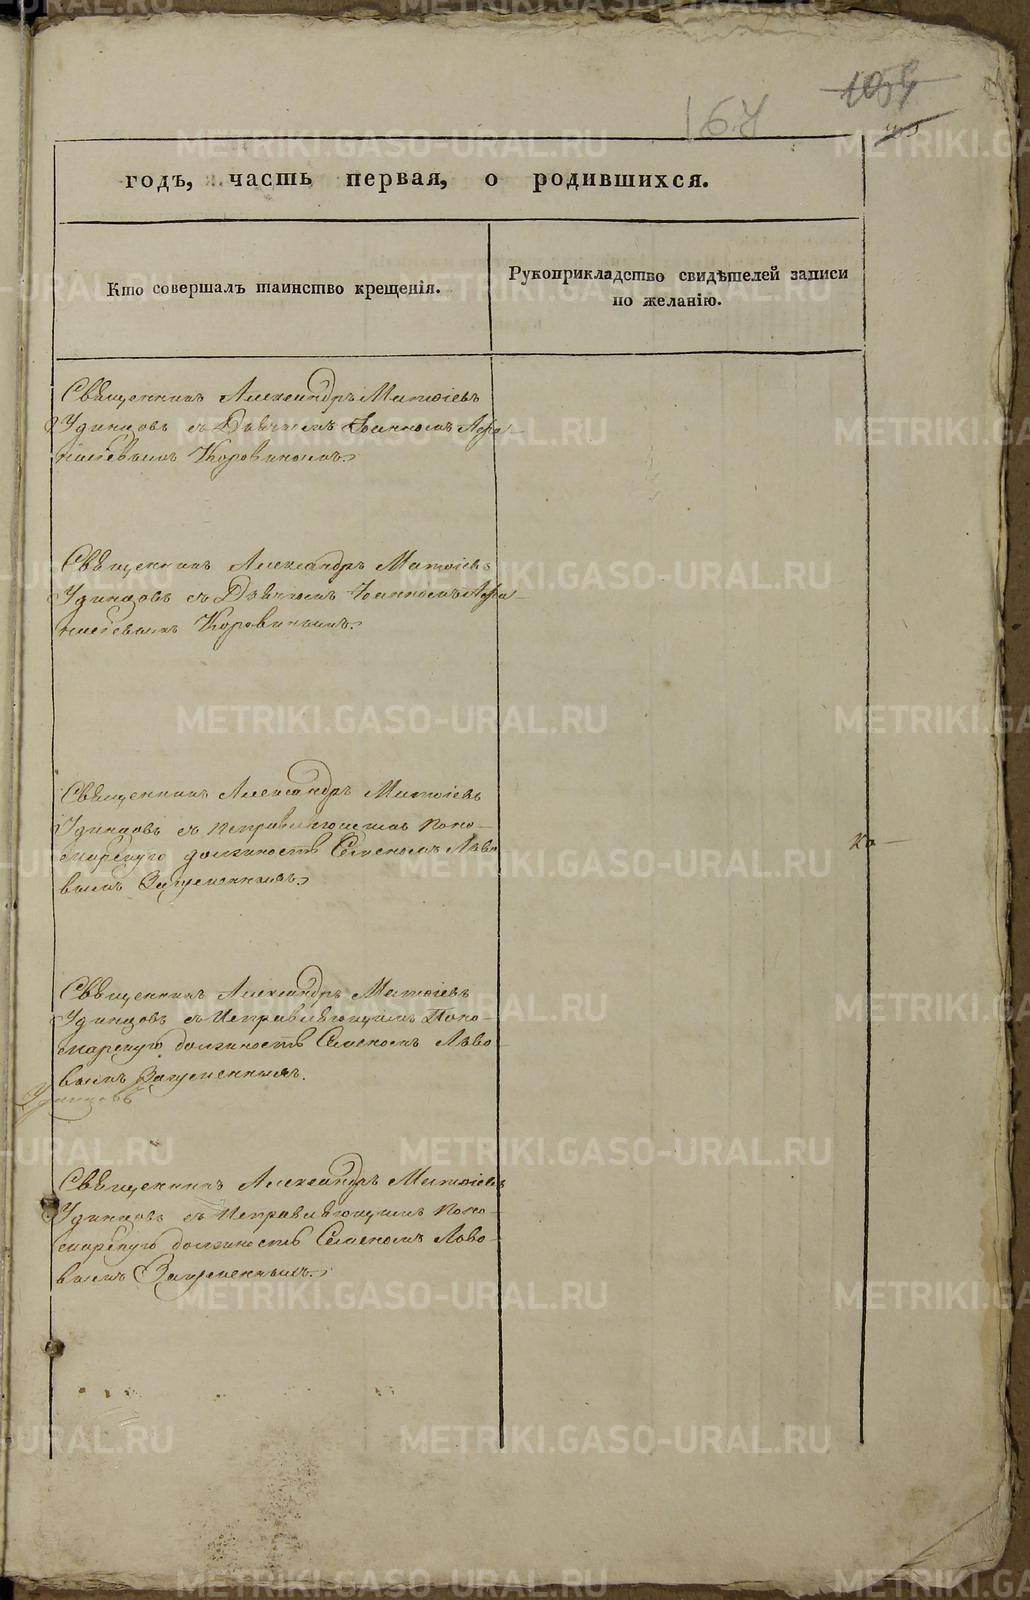 167
1054
годъ, часть первая, о родившихся.
Кто совершалъ таинство крещенія.
Рукоприкладство свидѣтелей записи
по желанію.
Священникъ Александръ Матѳіевъ
Удинцовъ съ Дьячкомъ Іоанномъ Афа-
насіевымъ Коровинымъ.
Священникъ Александръ Матѳіевъ
Удинцовъ съ Дьячкомъ Іоанномъ Афа-
насіевымъ Коровинымъ.
Священникъ Александръ Матѳіевъ
Удинцовъ съ исправляющимъ Поно-
марскую должность Семеномъ Льво-
вымъ
Ко-
Священникъ Александръ Матѳіевъ
Удинцовъ съ Исправляющимъ Поно-
марскую должность Семеномъ Льво-
вымъ
Удинцовъ
Священникъ Александръ Матѳіевъ
Удинцовъ съ Исправляющимъ Поно-
марскую должность Семеномъ Льво-
вымъ
METRIKI.GASO-URAL.RU